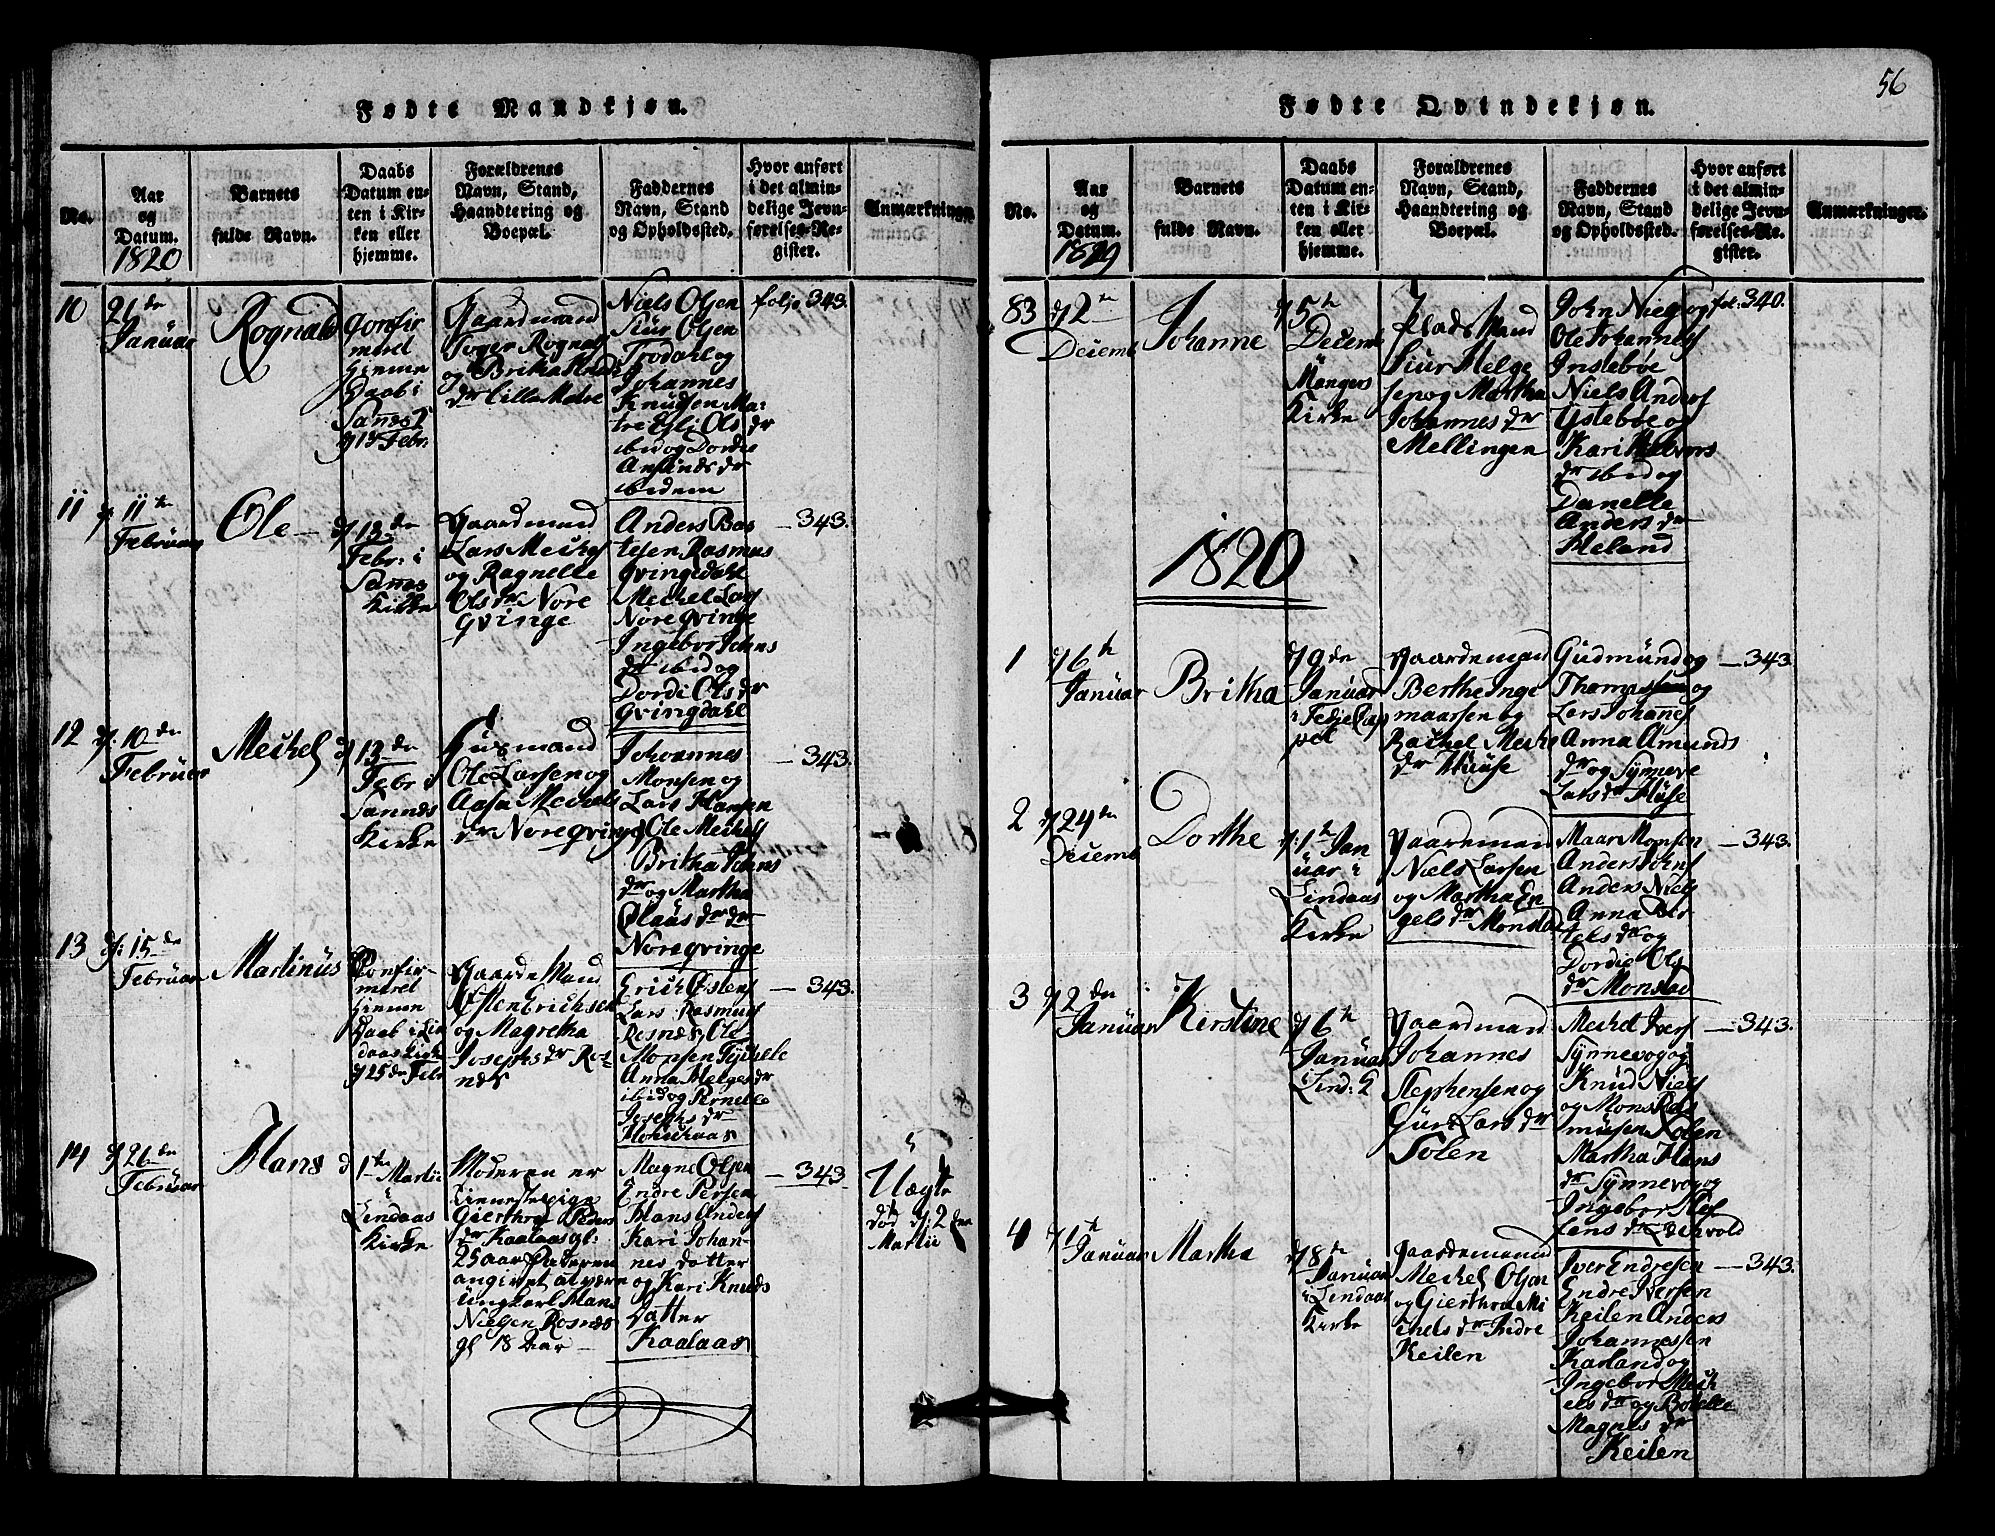 Fødte Mandkjøn.
No.
Aar
og
Datum.
1820
Barnets
fulde Navn.
Daabs
Datum en-
ten i Kir-
ken eller
hjemme.
Forældrenes
Navn, Stand,
Haandtering og
Boepæl.
Faddernes
Navn, Stand
og Opholdssted.
Hvor anført
i det almin-
delige Jevn-
førelses-Re-
gister.
Anmærkninger.
10
26 de
Januar
Rognald
Confir
meret
hiemme
Daab i
Sannes
d 13 Febr.
Gaardmand
Rognes
og Britha
dr Lille Matre
Niels Olsen
Siur Olsen
Trodahl og
Johannes
Knudsen Ma-
tre Eli Ols dr
ibid og Dordie
Amunds dr
ibidem
folje 343.
11
d 11 te
Februar
Ole
d 13 de
Febr: i
Sannes
Kirke
Gaardmand
Lars Meckels
og Ragnelle
Ols dr Nore
Qvinge
Anders Bas
tesen Rasmus
Qvingedahl
Meckel Lars
Nore Qvinge
Ingebor Johns
dr ibid og
Dordi Ols dr
Qvingdahl
— 343.
12
d: 10 de
Februar
Meckel
d 13 de
Febr i
Sannes
Kirke
Huusmand
Ole Larsen og
Aasa Meckels
dr Nore Qvinge
Johannes
Monsen og
Lars Hansen
Ole Meckels
Britha Johns
dr og Martha
Olaus dr
Nore Qvinge
— 343.
13
d: 15 de
Februar
Martinus
Confir-
meret
hiemme
Daab i Lin
daas Kirke
d 25 de Febr
Gaarde Mand
Østen Erichsen
og Magretha
Josephs dr Ros-
næs
Erich Østens
Lars Rasmus
Rosnæs Ole
Monsen
Anna Helges dr
ibid og Pernelle
Josephs dr
— 343.
14
d 26 de
Februar
Hans
d 1 te Martii
i
Lindaas
Kirke
Moderen er
tiennestepige
Gierthrol Peders
dr Kaalaas gl:
25 aar Faderen
angivet at være
Ungkarl Hans
Nielsen Rosnæs
gl 18 Aar
Magne Olsen
Endre Persen
Hans Anders
Kari Johan-
nes datter
og Kari Knuds
Datter
Kaalaas
— 343
Uægte
død d: 2 den
Martii
56
Fødte Qvindekjøn.
No.
Aar
og
Datum.
1819
Barnets
fulde Navn.
Daabs
Datum en-
ten i Kir-
ken eller
hjemme.
Forældrenes
Navn, Stand,
Haandtering og
Boepæl.
Faddernes
Navn, Stand
og Opholdssted.
Hvor anført
i det almin-
delige Jevn-
førelses-Re-
gister.
Anmærkninger.
83
d 2 te
Decemb
Johanne
d 5 te
Decemb
Mangers
Kirke
Plads Mand
Siur Helge
sen og Martha
Johannes dr
Mellingen
John Niels og
Ole Johannes
Instebøe
Niels Anders
Ystebøe og
Kari Halvors
dr ibid og
Danelle
Anders dr
Heland
fol: 340.
1820
1
d 6 te
Januar
Britha
d 9 de
Januar
i Fedje Cap
pel
Gaardemand
Berthe Inge
maarsen og
Rachel Meckels
dr Huuse
Gudmund og
Thomes og
Lars Johannes
Anna Amunds
dr og Synneve
Lars dr Huse
— 343.
2
d 24 te
Decemb
Dorthe
d: 1 te Jan
uar i
Lindaas
Kirke
Gaardemand
Niels Larsen
og Martha En
gels dr Monstad
Maar Monsen
Anders Johns
Anders Niels
Anna Ber
tels dr og
Dordie Ols
dr Monstad
— 343.
3
d 2 de
Januar
Kerstine
d 6 te
Januar
i Lind:
Gaardmand
Johannes
Stephensen og
Guri Lars dr
Solen
Meckel Ivers
Synnevog og
Knud Niels
og Mons Ras
musen Kolen
Martha Hans
dr Synnevog og
Ingebor
— 343.
4
d 1 te
Januar
Martha
d 8 te
Januar
i Lindaas
Kirke
Gaardemand
Meckel Olsen
og Gierthro Mi
chels dr Indre
Keilen
Iver Endresen
Endre Iversen
Keilen Anders
Johannessen
Karland og
Ingebor Meck
els dr og Botelle
Magnes dr
Keilen
— 343.